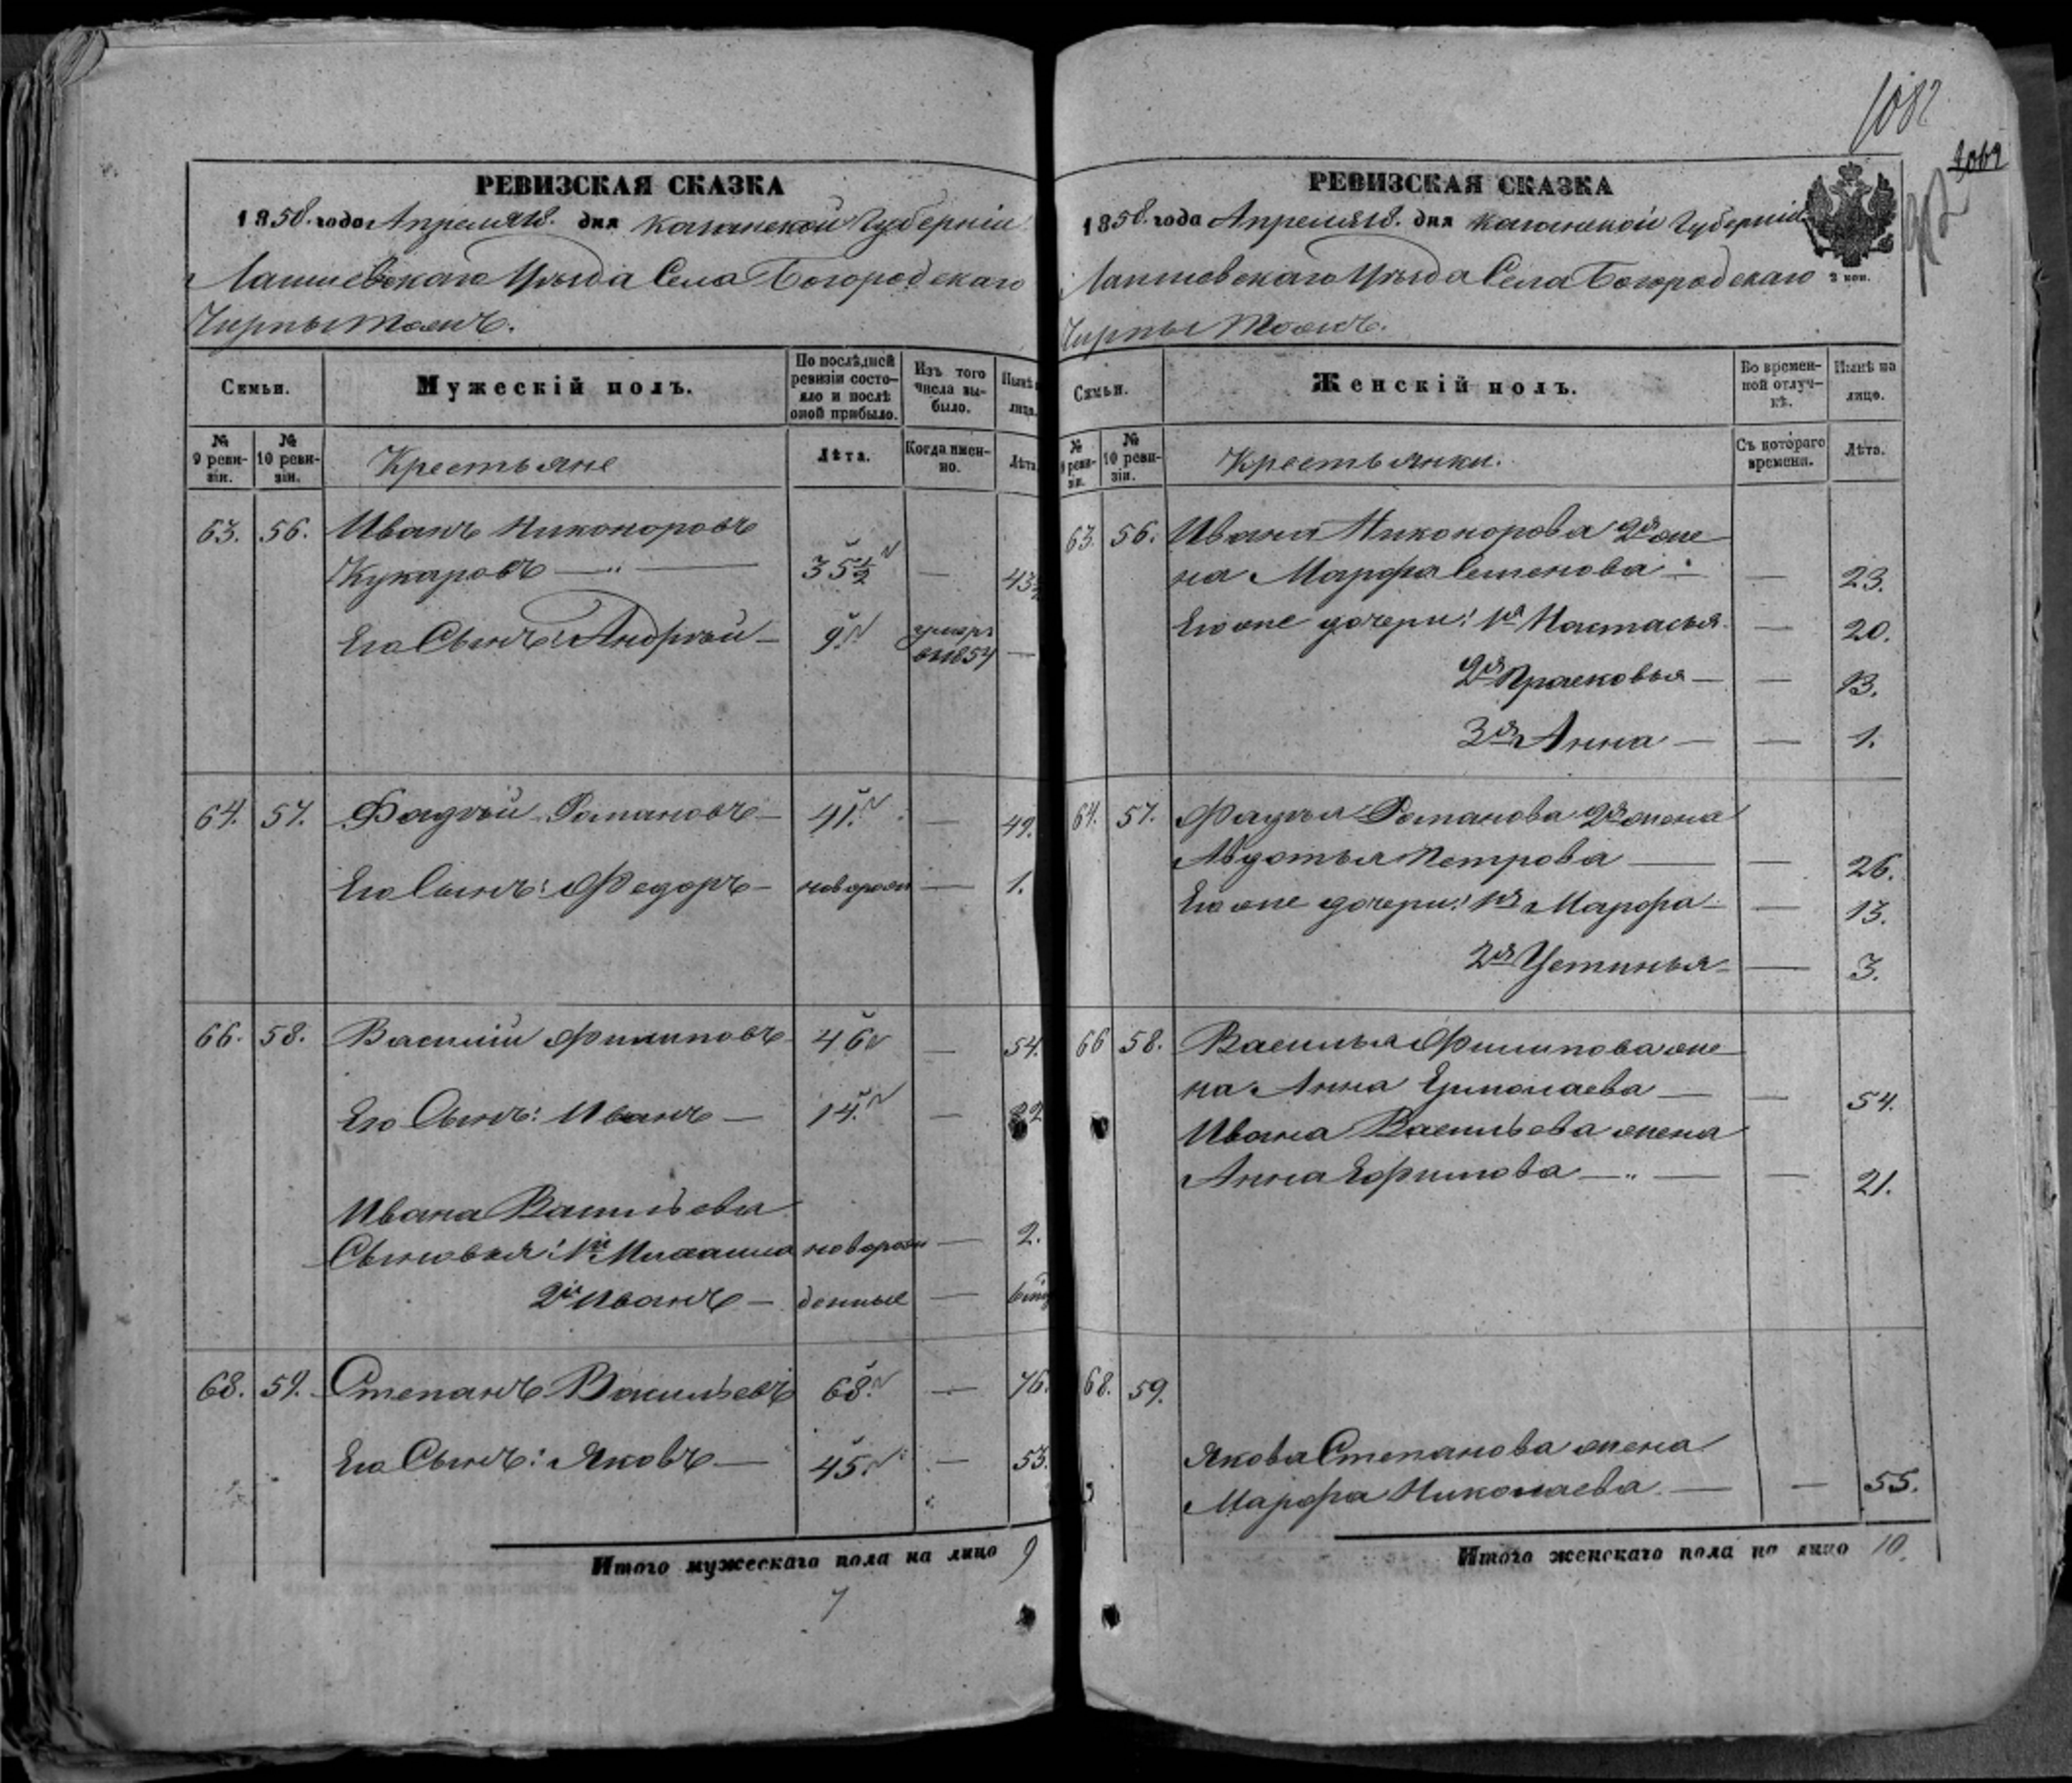 РЕВИЗСКАЯ СКАЗКА
1858. года Апреля 18. дня Казанской Губерніи
Лаишевскаго Уѣзда Села Богородскаго
Чирпы тожъ.
Семьи.
Мужескій полъ.
По послѣдней ревизіи состояло и послѣ оной прибыло.
Изъ того числа выбыло.
Нынѣ
лицо.
№ 9 ревизіи.
№ 10 ревизіи.
Крестьяне
Лѣта.
Когда именно.
Лѣта
63. 56. Иванъ Никоноровъ
Кукаровъ — „ — 35½ — 43½
Его Сынъ: Андрѣй — 9. умеръ
въ 1854 —
64. 57. Фадѣй Романовъ — 41. — 49.
Его Сынъ: Федоръ — новорож — 1.
66. 58. Василій Филиповъ 46 — 54.
Его Сынъ: Иванъ — 14. — 22
Ивана Васильева
Сыновья: 1й Михаила новорож — 2.
2й Иванъ — денные —
68. 59. Степанъ Васильевъ 68. — 76.
Его Сынъ: Яковъ — 45. — 53.
Итого мужескаго пола на лицо 9
7
1082
РЕВИЗСКАЯ СКАЗКА
1858. года Апреля 18. дня Казанской Губерніи
Лаишевскаго Уѣзда Села Богородскаго
2 коп.
Чирпы Тожъ.
Семьи.
Женскій полъ.
Во временной отлучкѣ.
Нынѣ на лицо.
№ 9 ревизіи.
№ 10 ревизіи.
Крестьянки.
Съ котораго времени.
Лѣта.
63. 56. Ивана Никонорова 2я же
на Марфа Семенова — — 23.
Его же дочери: 1я Настасья — 20.
2я Прасковья — — 13.
3я Анна — — 1.
64. 57. Фадѣя Романова 2я жена
Авдотья Петрова — — 26.
Его же дочери: 1я Марфа — — 13.
2я Устинья — — 3.
66 58. Василья Филипова же
на Анна Ермолаева — — 54.
Ивана Васильева жена
Анна Ефимова — „ — — 21.
68. 59.
Якова Степанова жена
Марфа Николаева — — 55.
Итого женскаго пола на лицо 10.